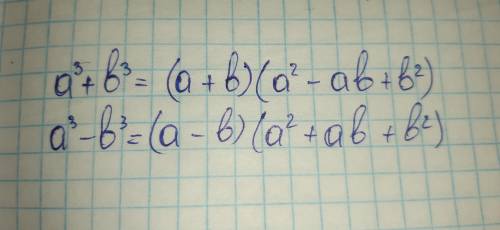 a³+b³=(a+b)(a²-ab+b²)
a³-b³=(a-b)(a²+ab+b²)